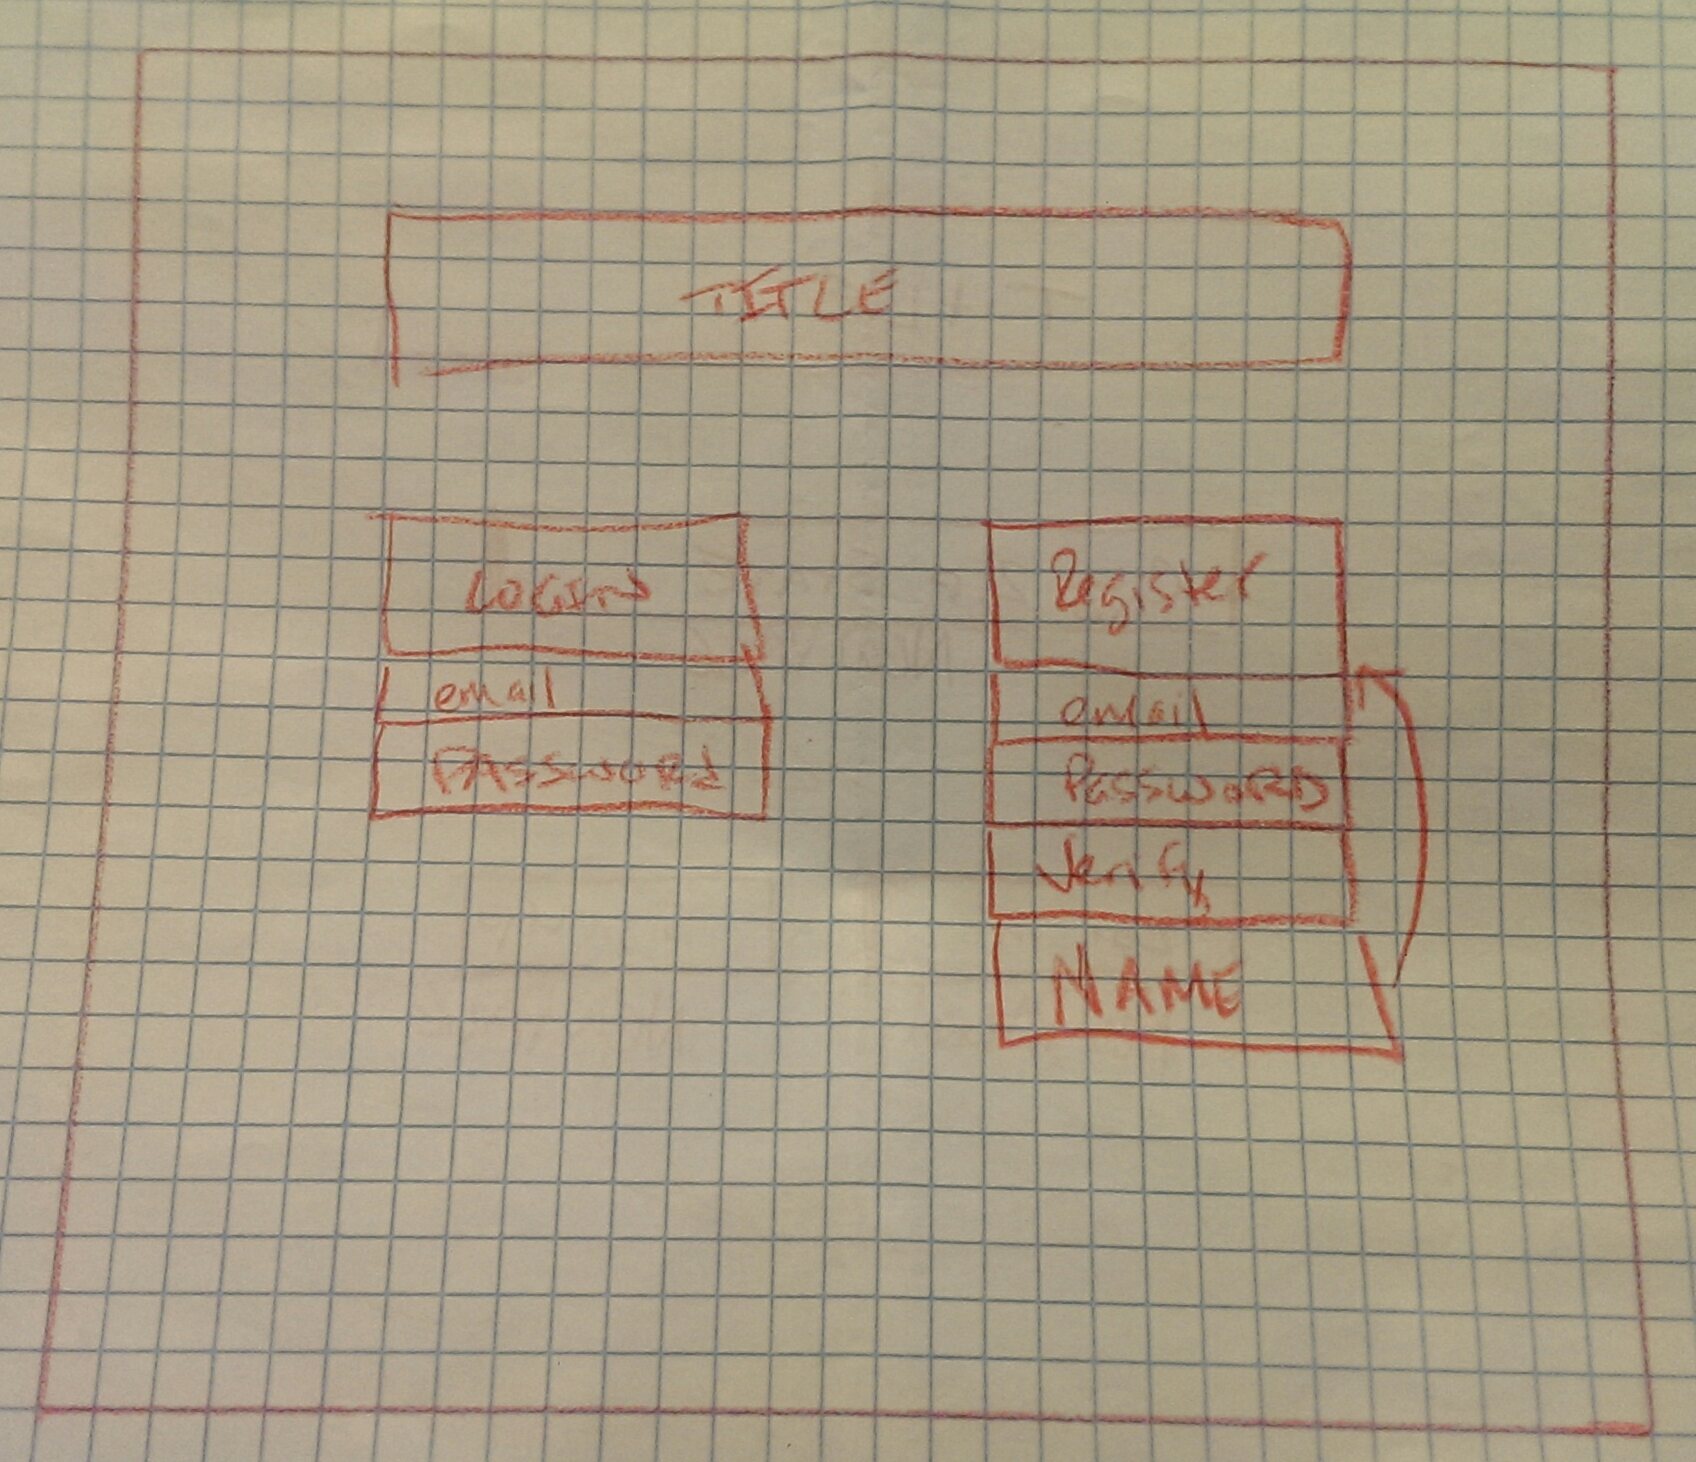 TITLE
LOGIN
email
PASSWORD
Register
email
PASSWORD
Verify
NAME